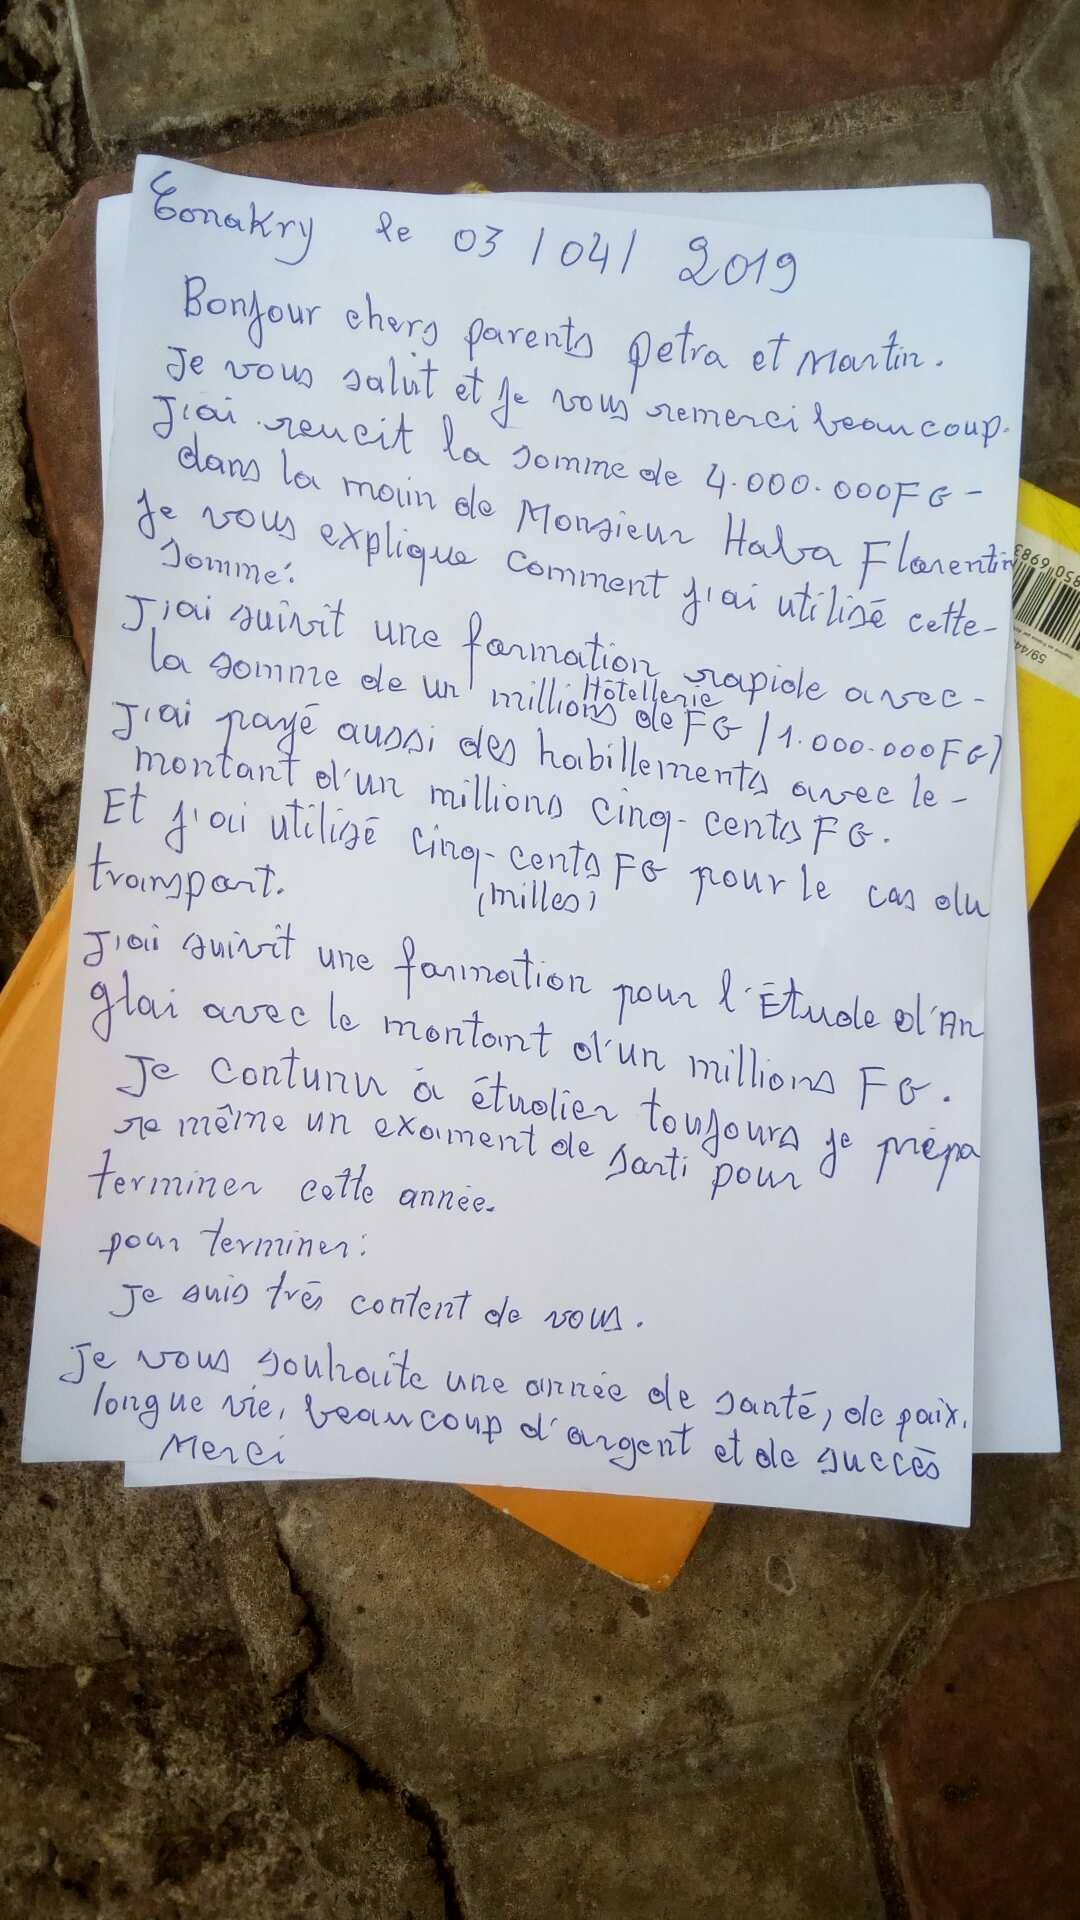 Conakry le 03/04/2019
Bonjour chers parents petra et Martin.
Je vous salut et je vous remerci beaucoup.
J'ai reucit la somme de 4.000.000FG-
dans la main de Monsieur Haba Florentin
Je vous explique comment j'ai utilisé cette-
somme:
J'ai suivit une formation rapide avec-
Hôtellerie
la somme de un millions de FG/1.000.000FG)
J'ai payé aussi des habillements avec le-
montant d'un millions cinq-cents FG.
Et j'ai utilisé cinq-cents FG pour le cas du
(milles)
transport.
J'ai suivit une formation pour l'Étude d'An
glai avec le montant d'un millions FG.
Je contunu à étudier toujours je prépa
re même un exament de santi pour
terminer cette année.
pour terminer:
Je suis très content de vous.
Je vous souhaite une année de santé, de paix,
longue vie, beaucoup d'argent et de succès
Merci
59/44